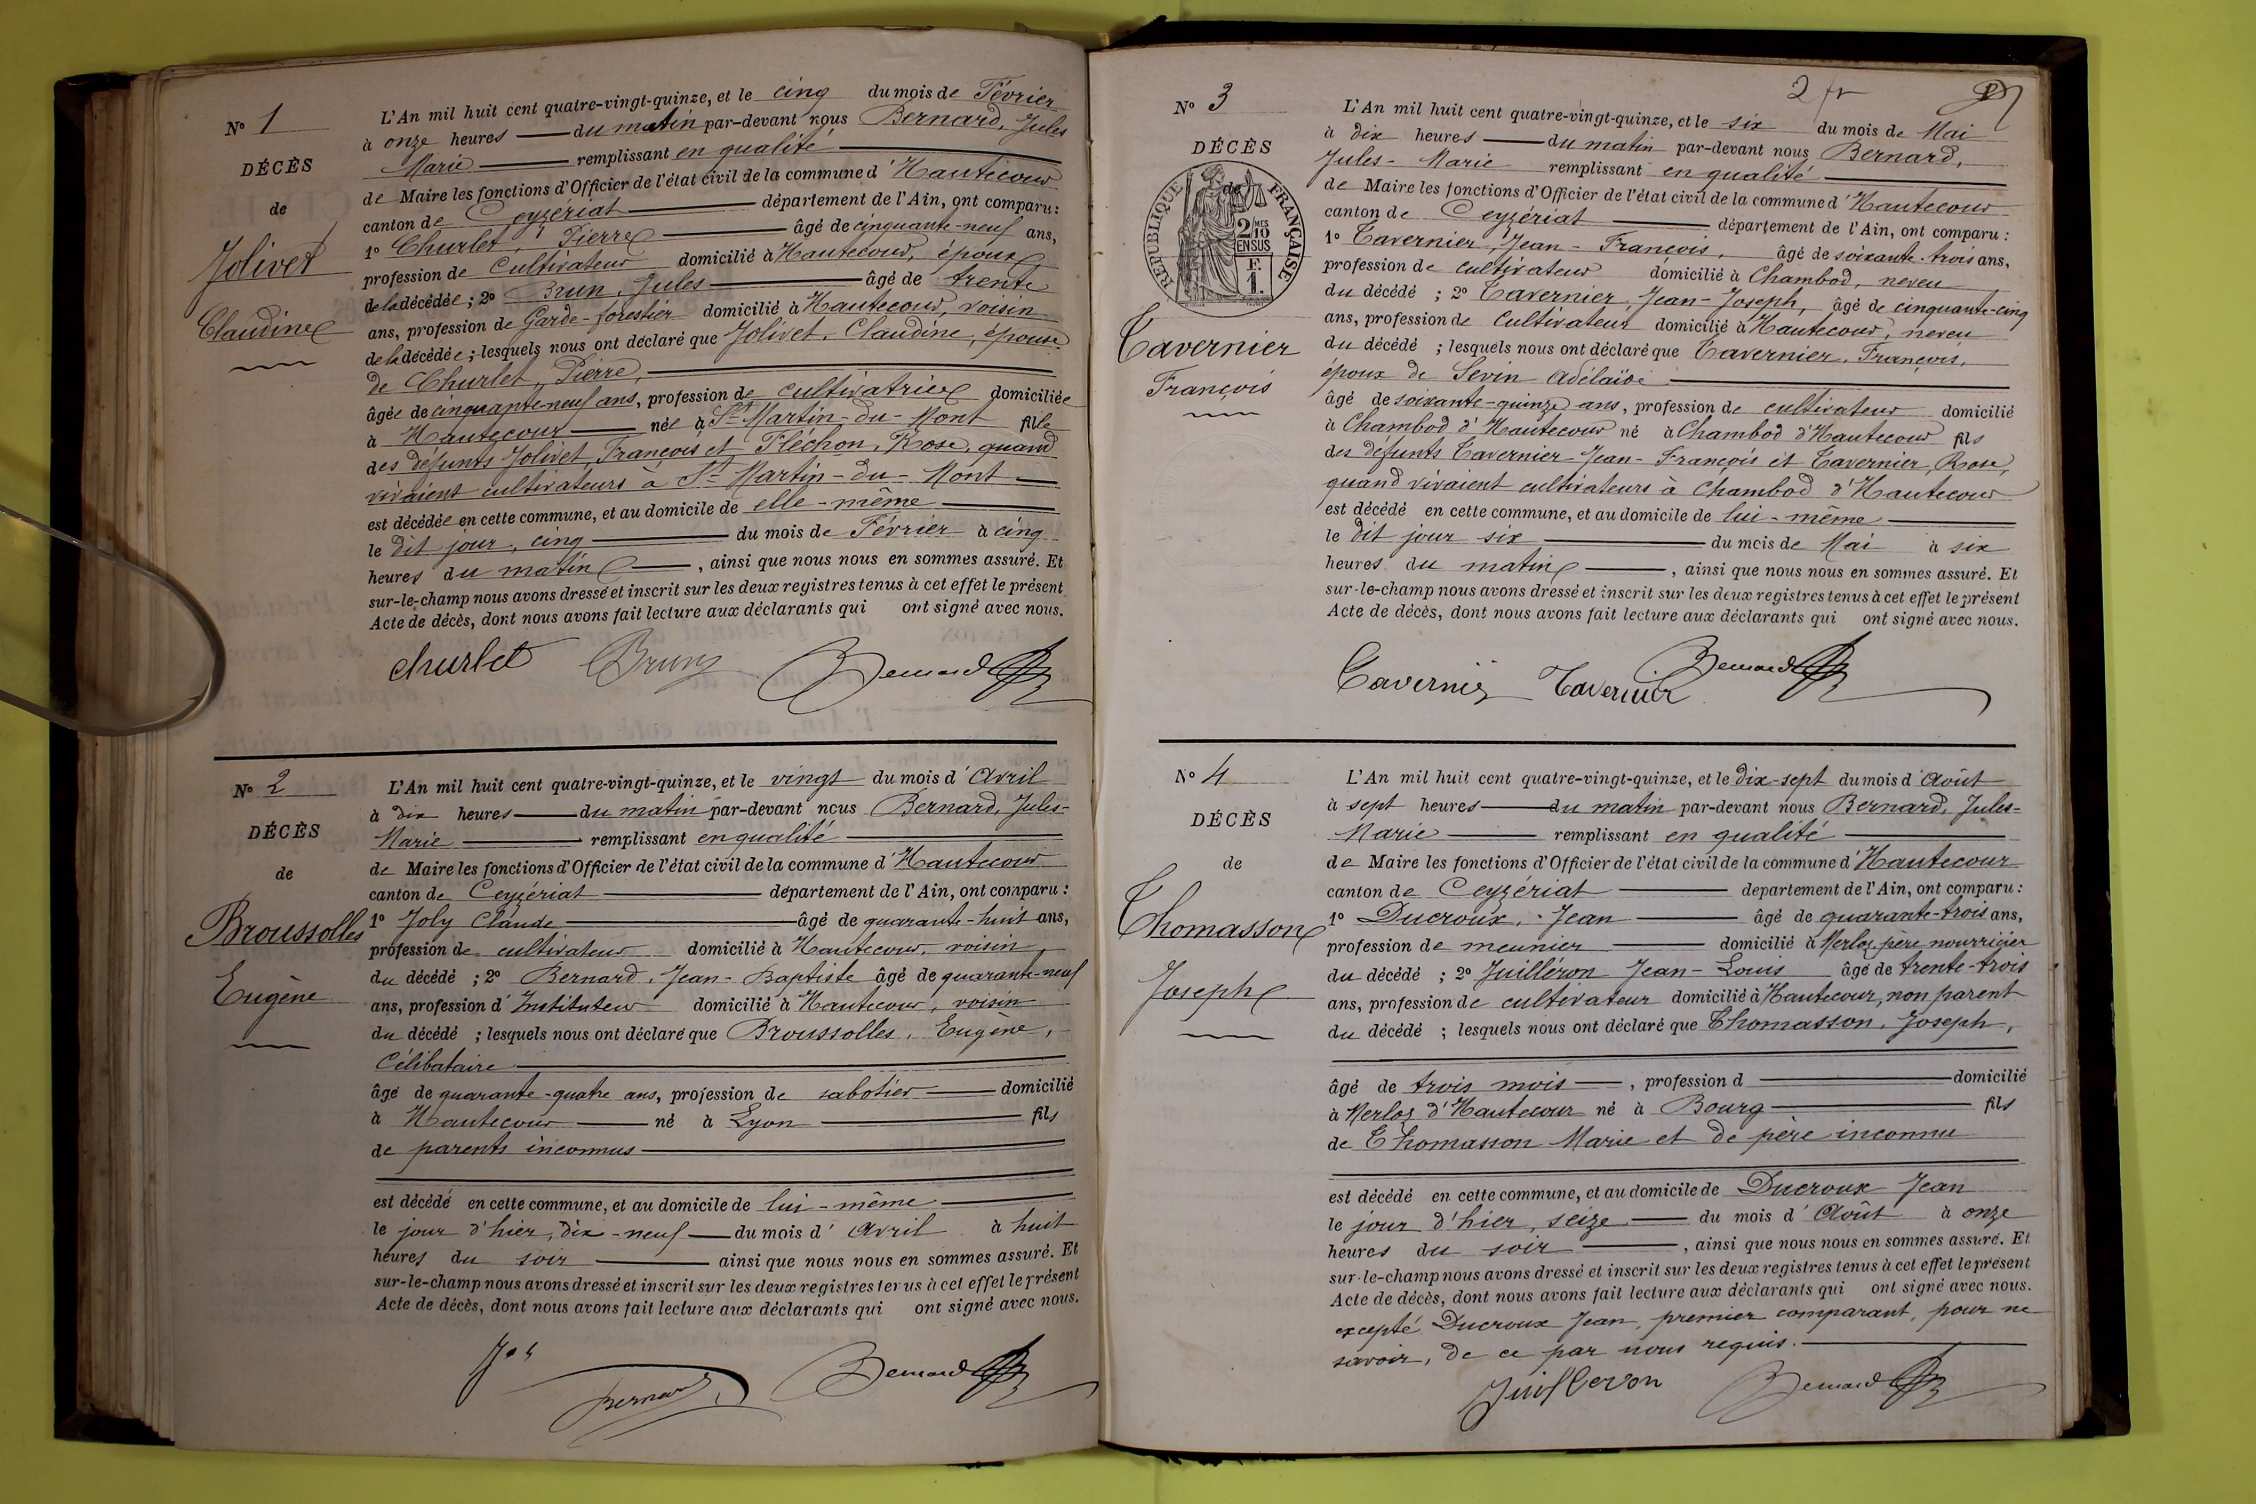 N° 1
DÉCÈS
de
Jolivet
Claudine
L'An mil huit cent quatre-vingt-quinze, et le cinq du mois de Février
à onze heures du matin par-devant nous Bernard, Jules
Marie remplissant en qualité
de Maire les fonctions d'Officier de l'état civil de la commune d'Hautecour
canton de Ceyzériat département de l'Ain, ont comparu :
1° Churlet, Pierre âgé de cinquante-neuf ans,
profession de Cultivateur domicilié à Hautecour, époux
de la décédée ; 2° Brun, Jules âgé de trente
ans, profession de Garde-forestier domicilié à Hautecour, voisin
de la décédée ; lesquels nous ont déclaré que Jolivet, Claudine, épouse
de Churlet, Pierre,
âgée de cinquante-neuf ans, profession de cultivatrice domiciliée
à Hautecour née à St Martin-du-Mont fille
des défunts Jolivet, François et Fléchon, Rose, quand
vivaient cultivateurs à St Martin-du-Mont
est décédée en cette commune, et au domicile de elle-même
le dit jour, cinq du mois de Février à cinq
heures du matin , ainsi que nous nous en sommes assuré. Et
sur-le-champ nous avons dressé et inscrit sur les deux registres tenus à cet effet le présent
Acte de décès, dont nous avons fait lecture aux déclarants qui ont signé avec nous.
Churlet Brun Bernard
N° 2
DÉCÈS
de
Broussolles
Eugène
L'An mil huit cent quatre-vingt-quinze, et le vingt du mois d'Avril
à dix heures du matin par-devant nous Bernard, Jules-
Marie remplissant en qualité
de Maire les fonctions d'Officier de l'état civil de la commune d'Hautecour
canton de Ceyzériat département de l'Ain, ont comparu :
1° Joly Claude âgé de quarante-huit ans,
profession de cultivateur domicilié à Hautecour, voisin
du décédé ; 2° Bernard, Jean-Baptiste âgé de quarante-neuf
ans, profession d'Instituteur domicilié à Hautecour, voisin
du décédé ; lesquels nous ont déclaré que Broussolles, Eugène,
Célibataire
âgé de quarante-quatre ans, profession de sabotier domicilié
à Hautecour né à Lyon fils
de parents inconnus
est décédé en cette commune, et au domicile de lui-même
le jour d'hier, dix-neuf du mois d'Avril à huit
heures du soir ainsi que nous nous en sommes assuré. Et
sur-le-champ nous avons dressé et inscrit sur les deux registres tenus à cet effet le présent
Acte de décès, dont nous avons fait lecture aux déclarants qui ont signé avec nous.
Bernard Bernard
2 fr
N° 3
DÉCÈS
de
RÉPUBLIQUE FRANÇAISE
2 MES
10
EN SUS
F.
1.
Tavernier
François
L'An mil huit cent quatre-vingt-quinze, et le six du mois de Mai
à dix heures du matin par-devant nous Bernard,
Jules-Marie remplissant en qualité
de Maire les fonctions d'Officier de l'état civil de la commune d'Hautecour
canton de Ceyzériat département de l'Ain, ont comparu :
1° Tavernier, Jean-François, âgé de soixante-trois ans,
profession de cultivateur domicilié à Chambod, neveu
du décédé ; 2° Tavernier, Jean-Joseph, âgé de cinquante-cinq
ans, profession de Cultivateur domicilié à Hautecour, neveu
du décédé ; lesquels nous ont déclaré que Tavernier, François,
époux de Sevin Adélaïde
âgé de soixante-quinze ans, profession de cultivateur domicilié
à Chambod d'Hautecour né à Chambod d'Hautecour fils
des défunts Tavernier Jean-François et Tavernier, Rose,
quand vivaient cultivateurs à Chambod d'Hautecour
est décédé en cette commune, et au domicile de lui-même
le dit jour six du mois de Mai à six
heures du matin , ainsi que nous nous en sommes assuré. Et
sur-le-champ nous avons dressé et inscrit sur les deux registres tenus à cet effet le présent
Acte de décès, dont nous avons fait lecture aux déclarants qui ont signé avec nous.
Tavernier Tavernier Bernard
N° 4
DÉCÈS
de
Thomasson
Joseph
L'An mil huit cent quatre-vingt-quinze, et le dix-sept du mois d'Août
à sept heures du matin par-devant nous Bernard, Jules-
Marie remplissant en qualité
de Maire les fonctions d'Officier de l'état civil de la commune d'Hautecour
canton de Ceyzériat departement de l'Ain, ont comparu :
1° Ducroux, Jean âgé de quarante-trois ans,
profession de meunier domicilié à Merloz, père nourricier
du décédé ; 2° Juilléron Jean-Louis âgé de trente-trois
ans, profession de cultivateur domicilié à Hautecour, non parent
du décédé ; lesquels nous ont déclaré que Thomasson, Joseph,
âgé de trois mois , profession d domicilié
à Merloz d'Hautecour né à Bourg fils
de Thomasson Marie et de père inconnu
est décédé en cette commune, et au domicile de Ducroux Jean
le jour d'hier, seize du mois d'Août à onze
heures du soir , ainsi que nous nous en sommes assuré. Et
sur-le-champ nous avons dressé et inscrit sur les deux registres tenus à cet effet le présent
Acte de décès, dont nous avons fait lecture aux déclarants qui ont signé avec nous.
excepté Ducroux Jean, premier comparant, pour ne
savoir, de ce par nous requis.
Juilleron Bernard